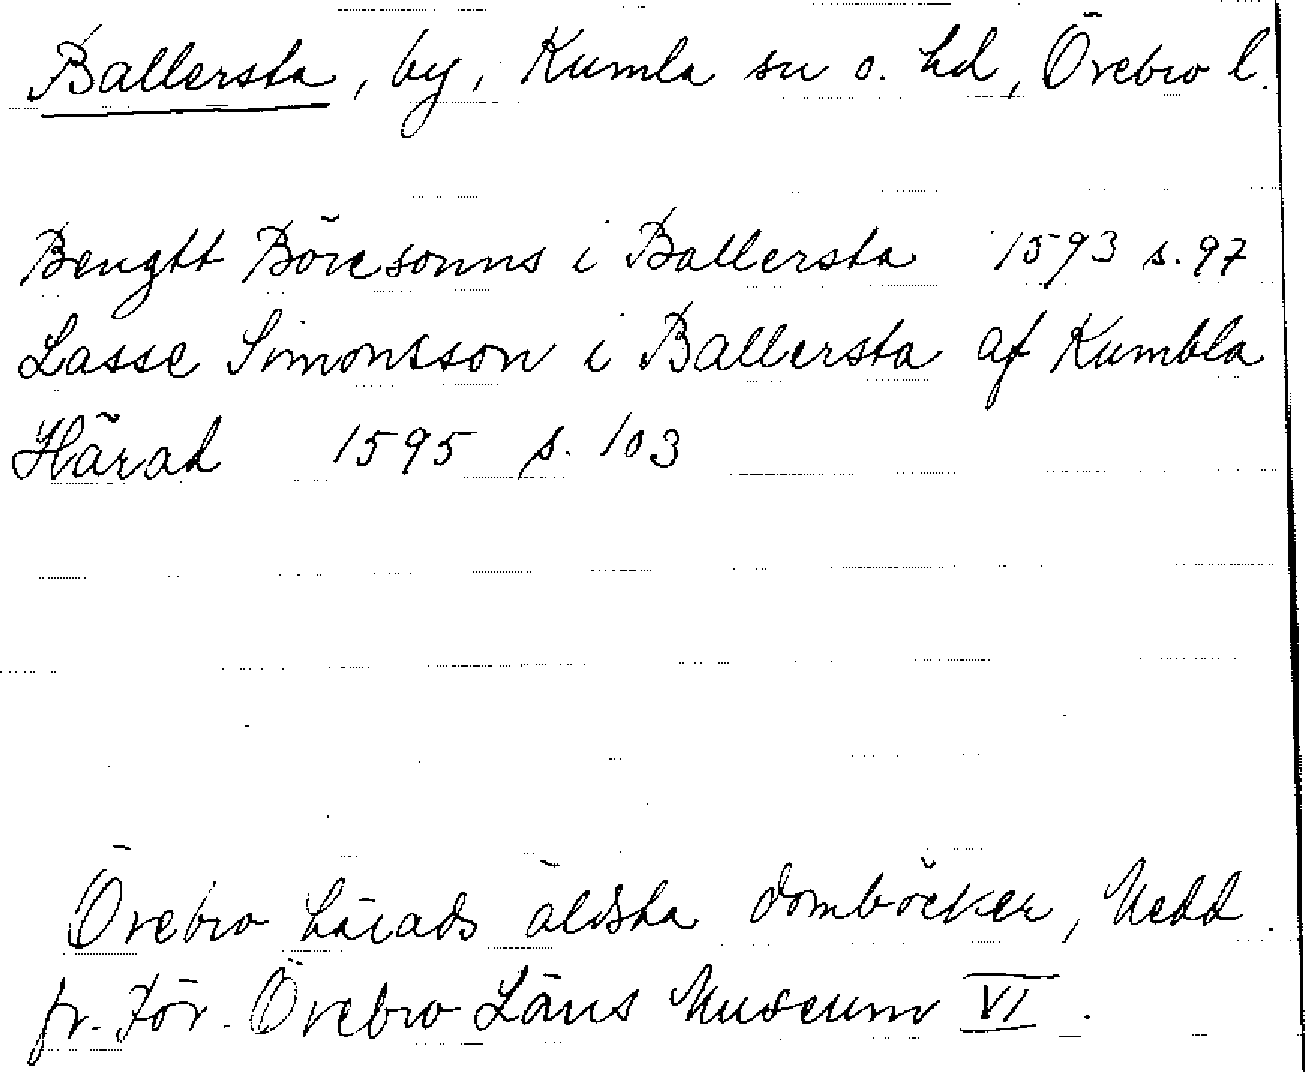 Ballersta, by, Kumla sn o. hd, Örebro l.
Bengtt Böresonns i Ballersta 1593 s. 97
Lasse Simonsson i Ballersta af Kumbla
Härad 1595 s. 103
Örebro härads äldsta domböcker, Medd
fr. För. Örebro Läns Museum VI.